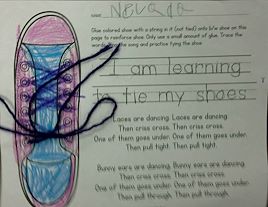 NAME Nevada
Glue colored shoe with a string in it (not tied) onto b/w shoe on this
page to reinforce shoe. Only use a small amount of glue. Trace the
words. Sing the song and practice tying the shoe.
I am learning
to tie my shoes
Laces are dancing. Laces are dancing.
Then criss cross. Then criss cross.
One of them goes under. One of them goes under.
Then pull tight. Then pull tight.
Bunny ears are dancing. Bunny ears are dancing.
Then criss cross. Then criss cross.
One of them goes under. One of them goes under.
Then pull through. Then pull through.